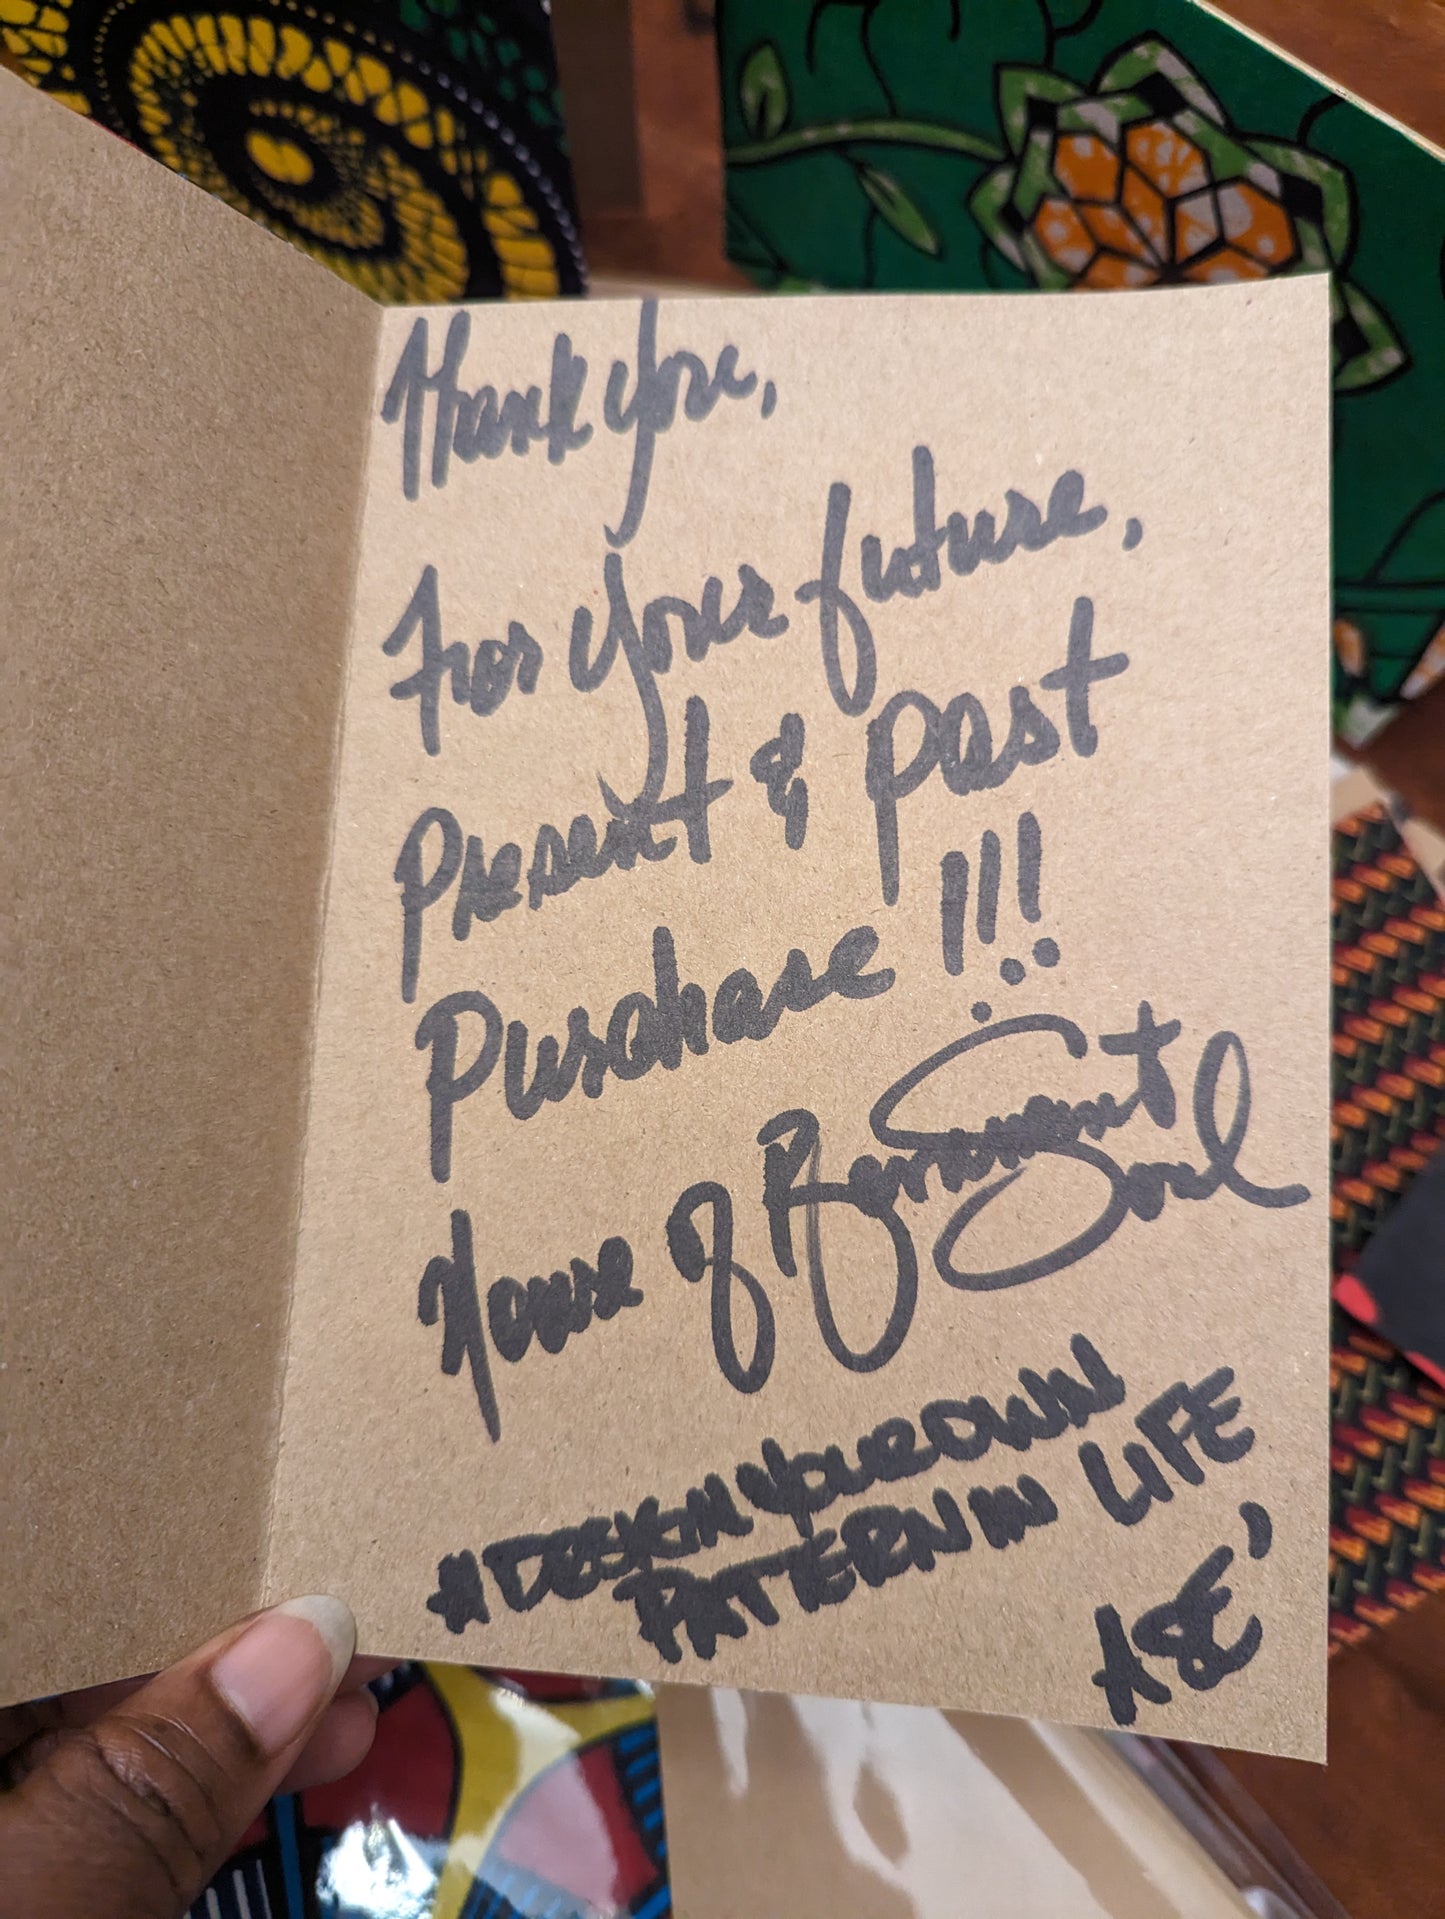 Thank you,
For your future,
Present & past
Purchase!!!
House of Garment Soul
#DESIGN YOUR OWN
PATTERN IN LIFE
ASE'